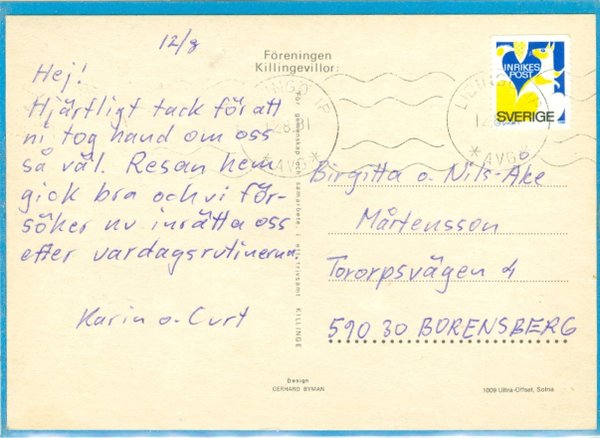 12/8
Hej!
Hjärtligt tack för att
ni tog hand om oss
så väl. Resan hem
gick bra och vi för-
söker nu inrätta oss
efter vardagsrutinerna.
Karin o. Curt
Föreningen
Killingevillor:
för gemenskap och samarbete i ett trivsamt KILLINGE
Design
GERHARD BYMAN
LIDINGÖ 1P
12.8.81
* AVG *
INRIKES
POST
SVERIGE
LIDINGÖ
AVG
Birgitta o. Nils-Åke
Mårtensson
Tororpsvägen 4
590 30 BORENSBERG
1009 Ultra-Offset, Solna